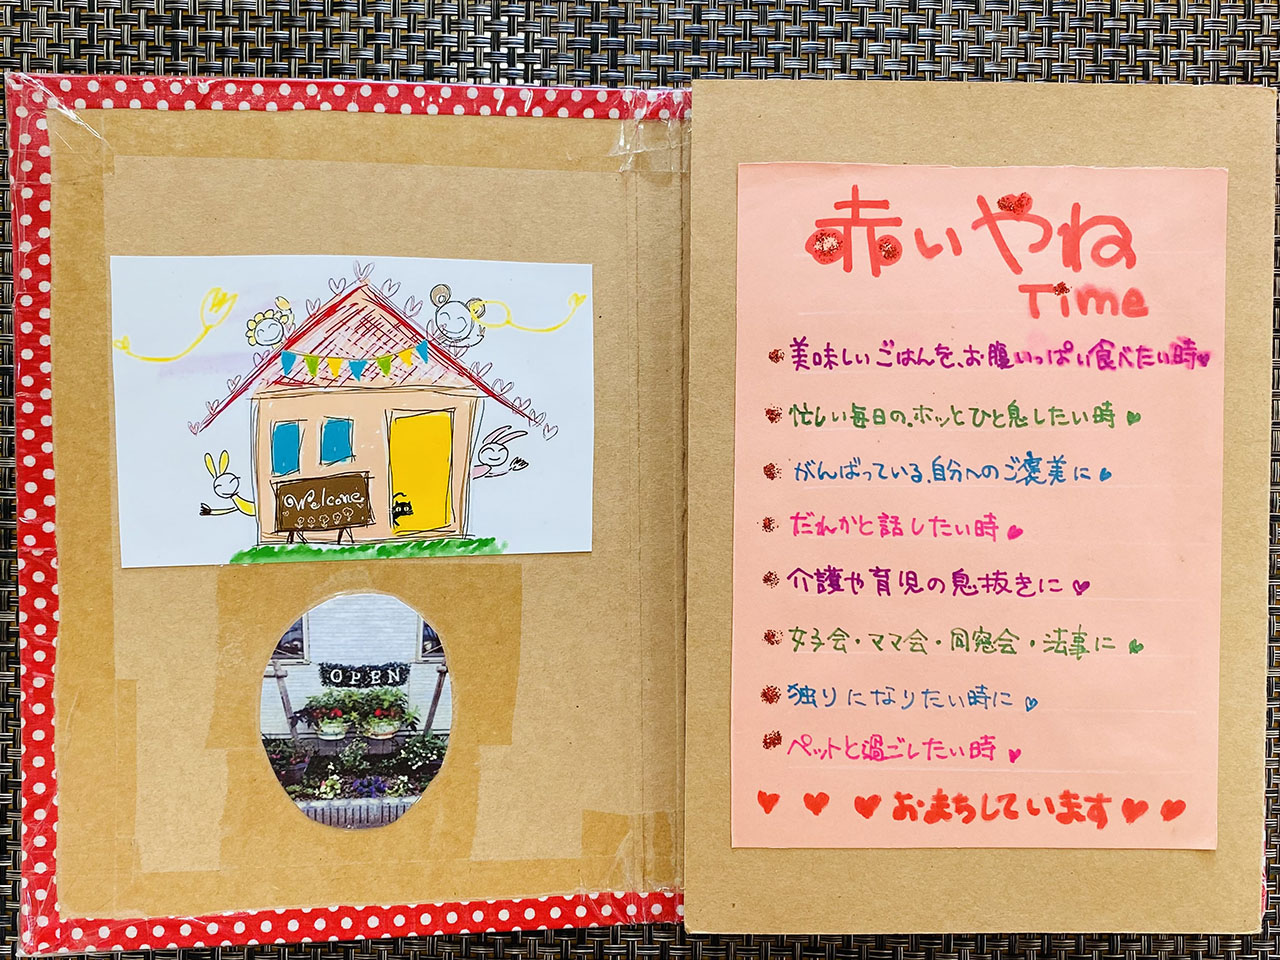 Welcome
OPEN
赤いやね
Time
美味しいごはんを、お腹いっぱい食べたい時
忙しい毎日の、ホッとひと息したい時
がんばっている、自分へのご褒美に
だれかと話したい時
介護や育児の息抜きに
女子会・ママ会・同窓会・法事に
独りになりたい時に
ペットと過ごしたい時
おまちしています